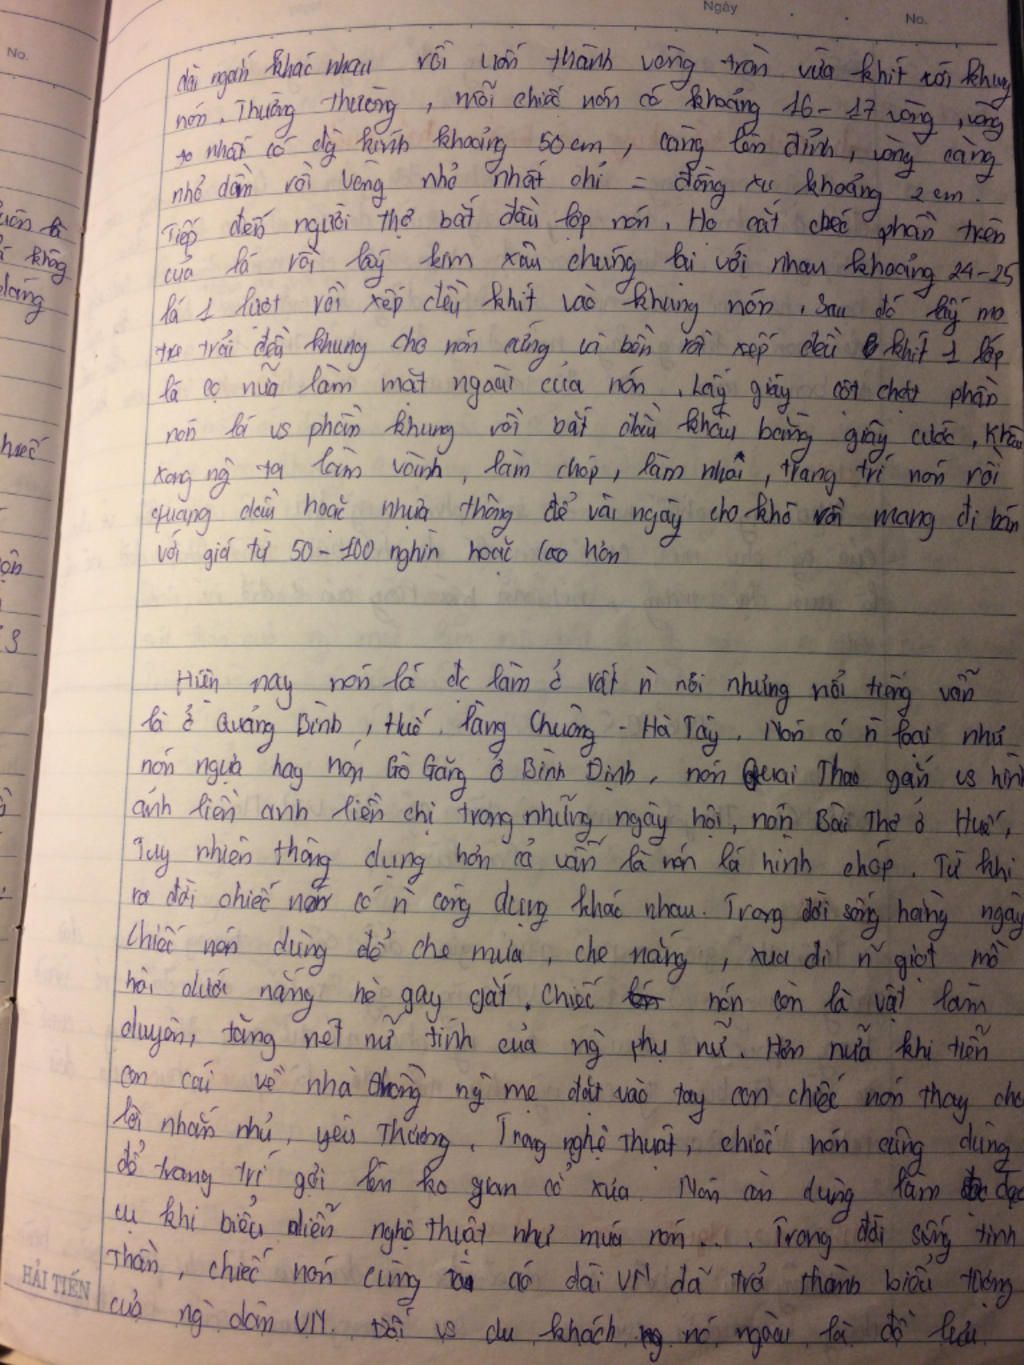 Ngày
No.
No.
dài ngắn khác nhau rồi uốn thành vòng tròn vừa khít với khung
nón. Thông thường, mỗi chiếc nón có khoảng 16-17 vòng, vòng
to nhất có đg kính khoảng 50cm, càng lên đỉnh, vòng càng
nhỏ dần rồi vòng nhỏ nhất chỉ = đồng xu khoảng 2cm.
Tiếp đến người thợ bắt đầu lợp nón. Họ cắt chéo phần trên
của lá rồi lấy kim xâu chúng lại với nhau khoảng 24-25
lá 1 lượt rồi xếp đều khít vào khung nón. Sau đó lấy mo
tre trải đều khung cho nón cứng và bền rồi xếp đều khít 1 lớp
lá cọ nữa làm mặt ngoài của nón. Lấy giây cột chặt phần
nón lá vs phần khung rồi bắt đầu khâu bằng giây cước. Khâu
xong ng ta làm vành, làm chóp, làm nhôi, trang trí nón rồi
quang dầu hoặc nhựa thông để vài ngày cho khô rồi mang đi bán
với giá từ 50-100 nghìn hoặc cao hơn
Hiện nay nón lá đc làm ở rất n nơi nhưng nổi tiếng vẫn
là ở Quảng Bình, Huế, làng Chuông - Hà Tây. Nón có n loại như
nón ngựa hay nón Gò Găng ở Bình Định, nón Quai Thao gắn vs hình
ảnh liền anh liền chị trong những ngày hội, nón Bài Thơ ở Huế,
Tuy nhiên thông dụng hơn cả vẫn là nón lá hình chóp. Từ khi
ra đời chiếc nón có n công dụng khác nhau. Trong đời sống hàng ngày
chiếc nón dùng để che mưa, che nắng, xua đi n giọt mồ
hôi dưới nắng hè gay gắt. Chiếc nón còn là vật làm
duyên, tăng nét nữ tính của ng phụ nữ. Hơn nữa khi tiễn
con cái về nhà chồng ng mẹ đặt vào tay con chiếc nón thay cho
lời nhắn nhủ, yêu thương. Trong nghệ thuật, chiếc nón cũng dùng
để trang trí gợi lên ko gian cổ xưa. Nón còn dùng làm đạo
cụ khi biểu diễn nghệ thuật như múa nón... Trong đời sống tinh
thần, chiếc nón cùng áo dài VN đã trở thành biểu tượng
của ng dân VN. Đối vs du khách nc ngoài là đồ lưu
HẢI TIẾN